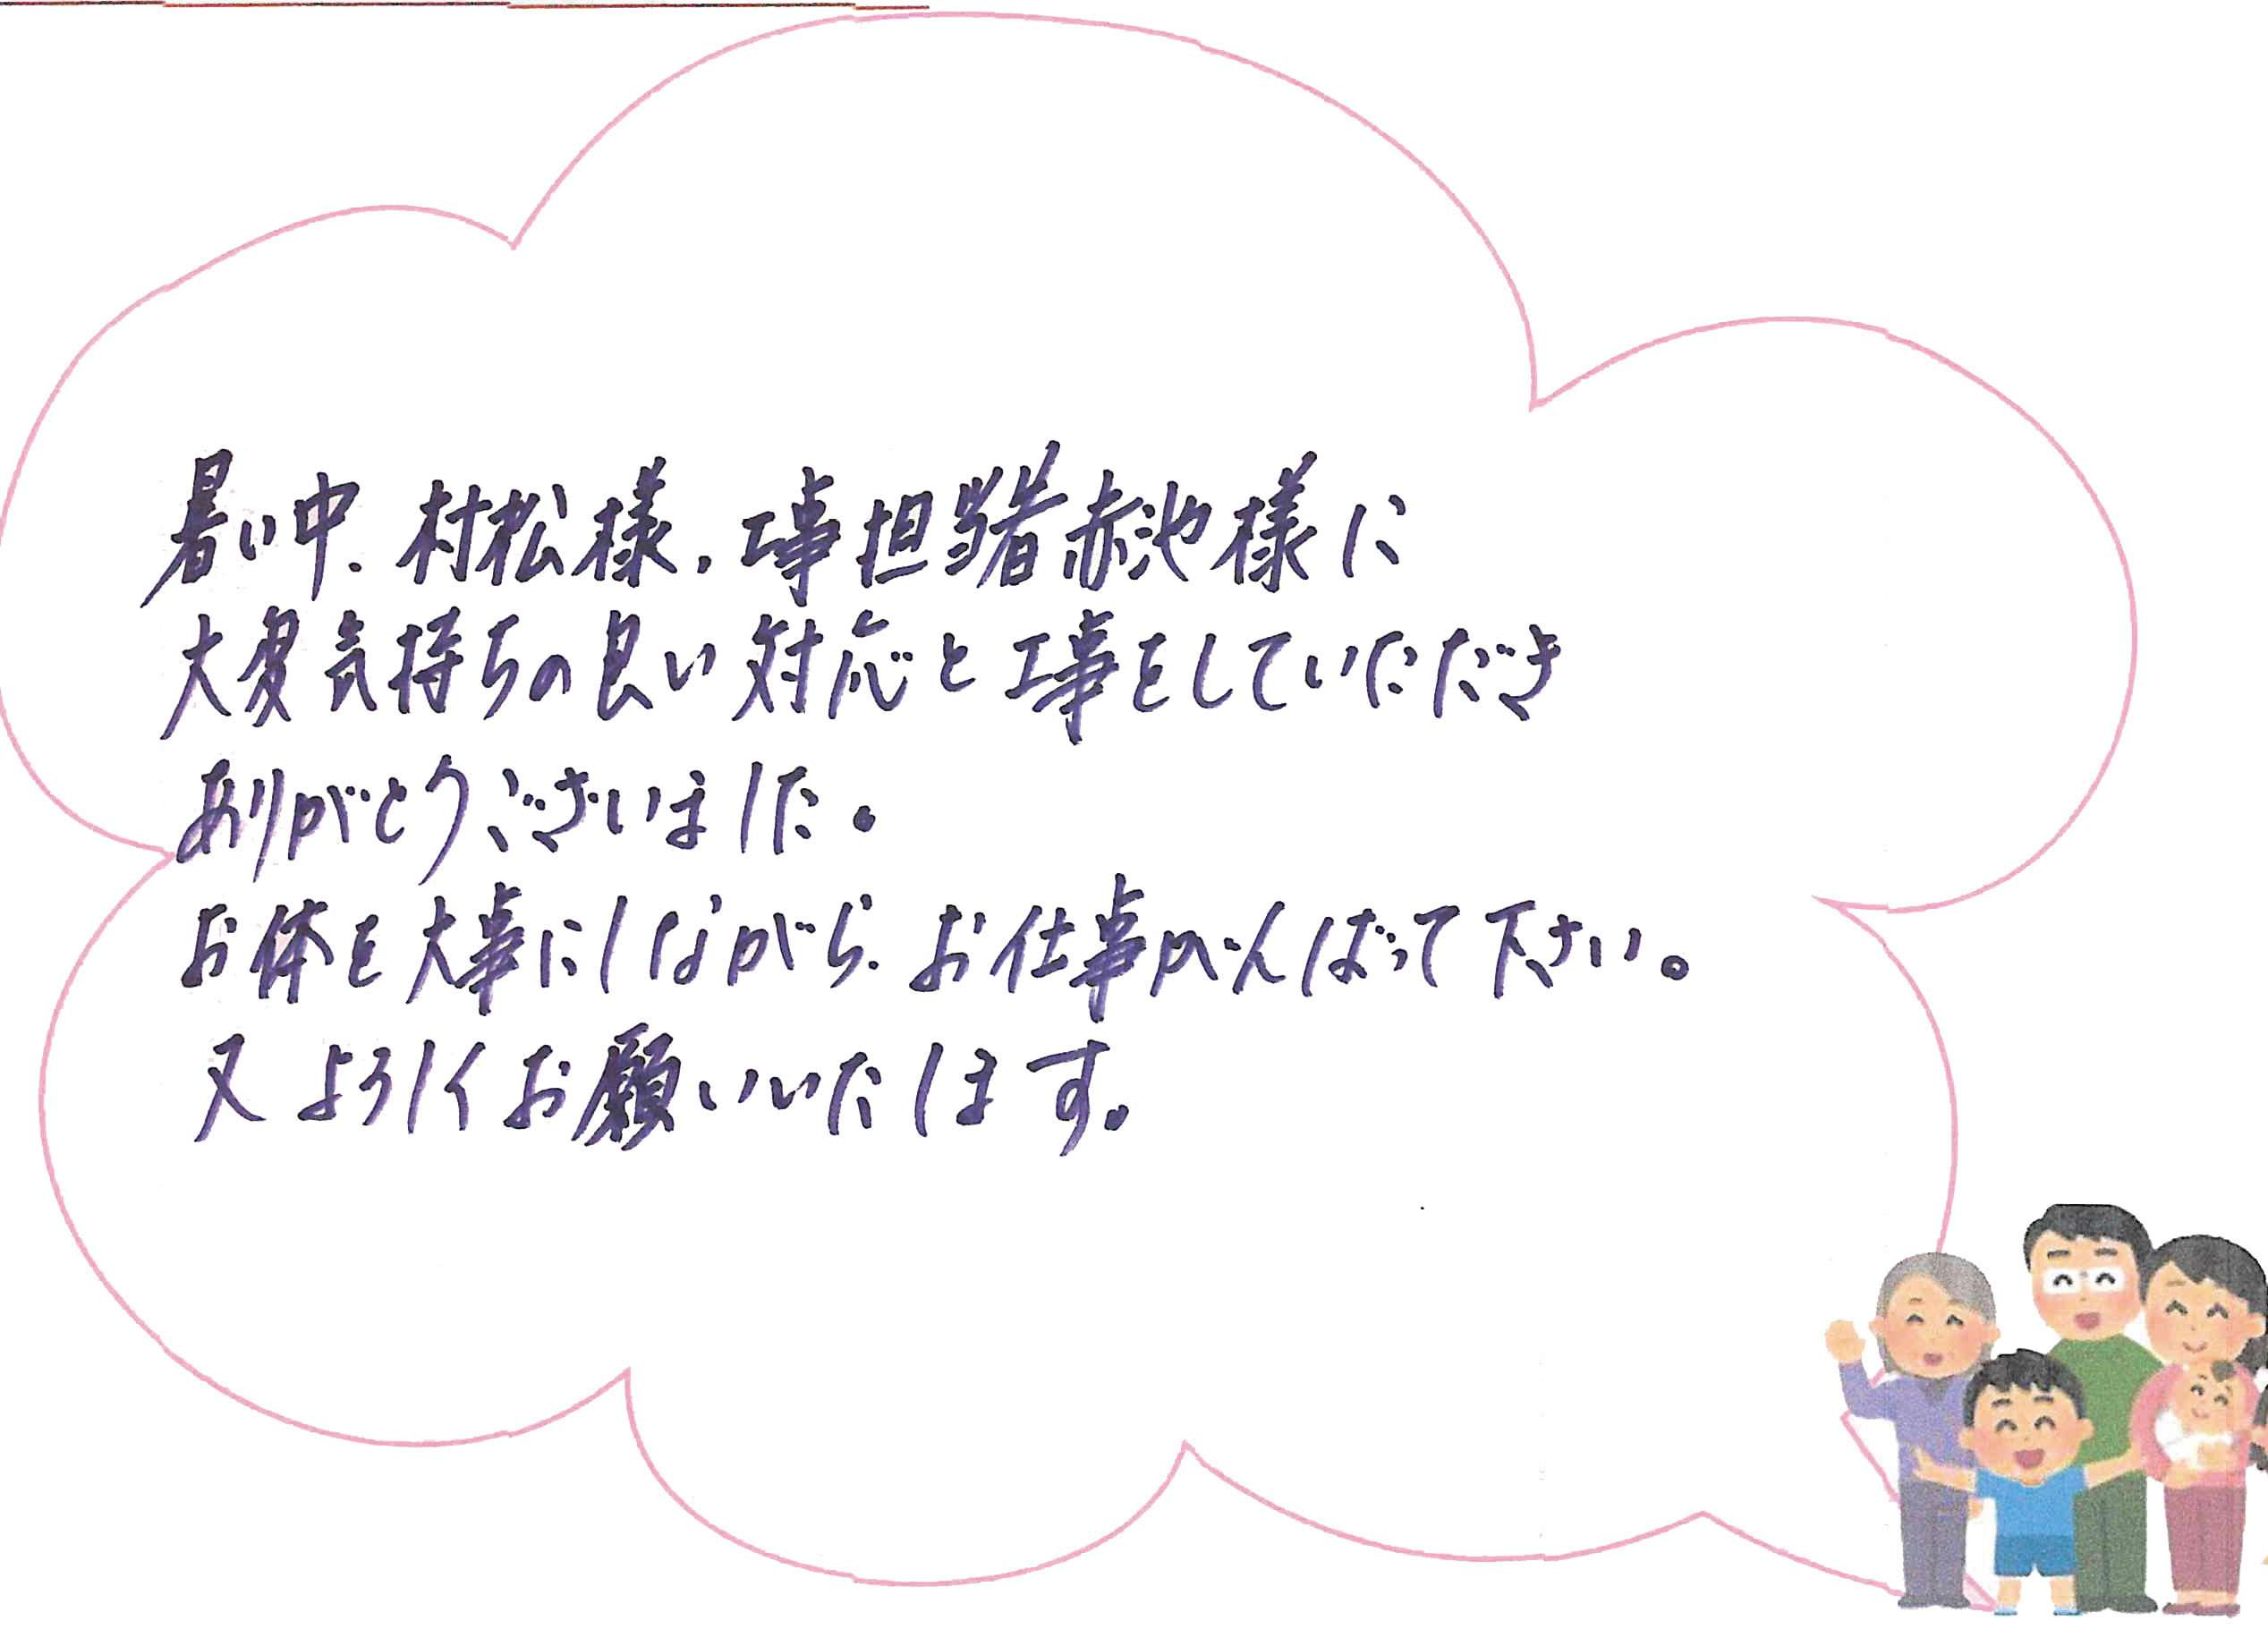 暑い中、村松様、工事担当者赤池様に
大変気持ちの良い対応と工事をしていただき
ありがとうございました。
お体を大事にしながら、お仕事がんばって下さい。
又よろしくお願いいたします。